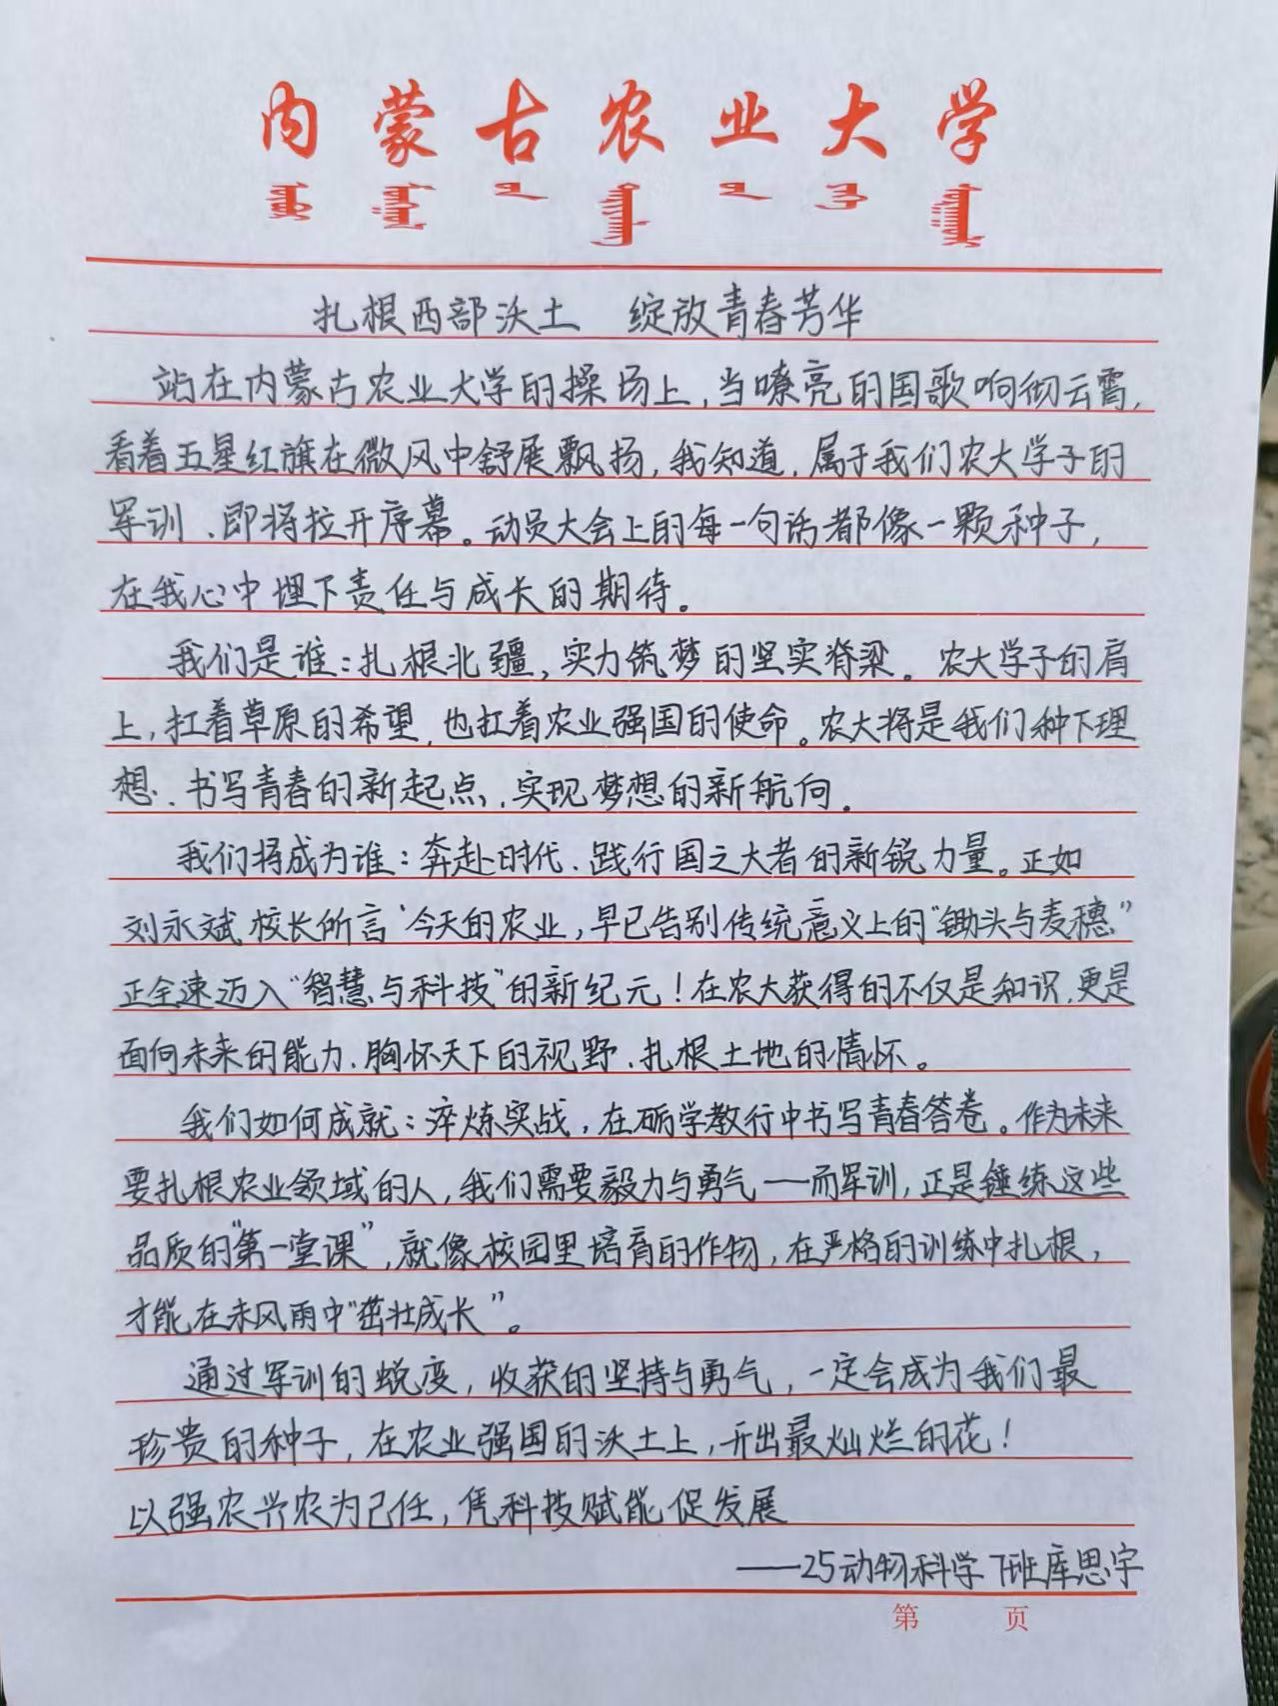 内蒙古农业大学
扎根西部沃土 绽放青春芳华
站在内蒙古农业大学的操场上,当嘹亮的国歌响彻云霄,
看着五星红旗在微风中舒展飘扬,我知道,属于我们农大学子的
军训、即将拉开序幕。动员大会上的每一句话都像一颗种子,
在我心中埋下责任与成长的期待。
我们是谁:扎根北疆,实力筑梦的坚实脊梁。农大学子的肩
上,扛着草原的希望,也扛着农业强国的使命。农大将是我们种下理
想、书写青春的新起点,实现梦想的新航向.
我们将成为谁:奔赴时代、践行国之大者的新锐力量。正如
刘永斌校长所言‘今天的农业,早已告别传统意义上的“锄头与麦穗”
正全速迈入“智慧与科技”的新纪元!在农大获得的不仅是知识,更是
面向未来的能力、胸怀天下的视野、扎根土地的情怀。
我们如何成就:淬炼实战,在砺学教行中书写青春答卷。作为未来
要扎根农业领域的人,我们需要毅力与勇气——而军训,正是锤练这些
品质的“第一堂课”,就像校园里培育的作物,在严格的训练中扎根,
才能在未风雨中“茁壮成长”。
通过军训的蜕变,收获的坚持与勇气,一定会成为我们最
珍贵的种子,在农业强国的沃土上,开出最灿烂的花!
以强农兴农为己任,凭科技赋能促发展
——25动物科学7班库思宇
第 页